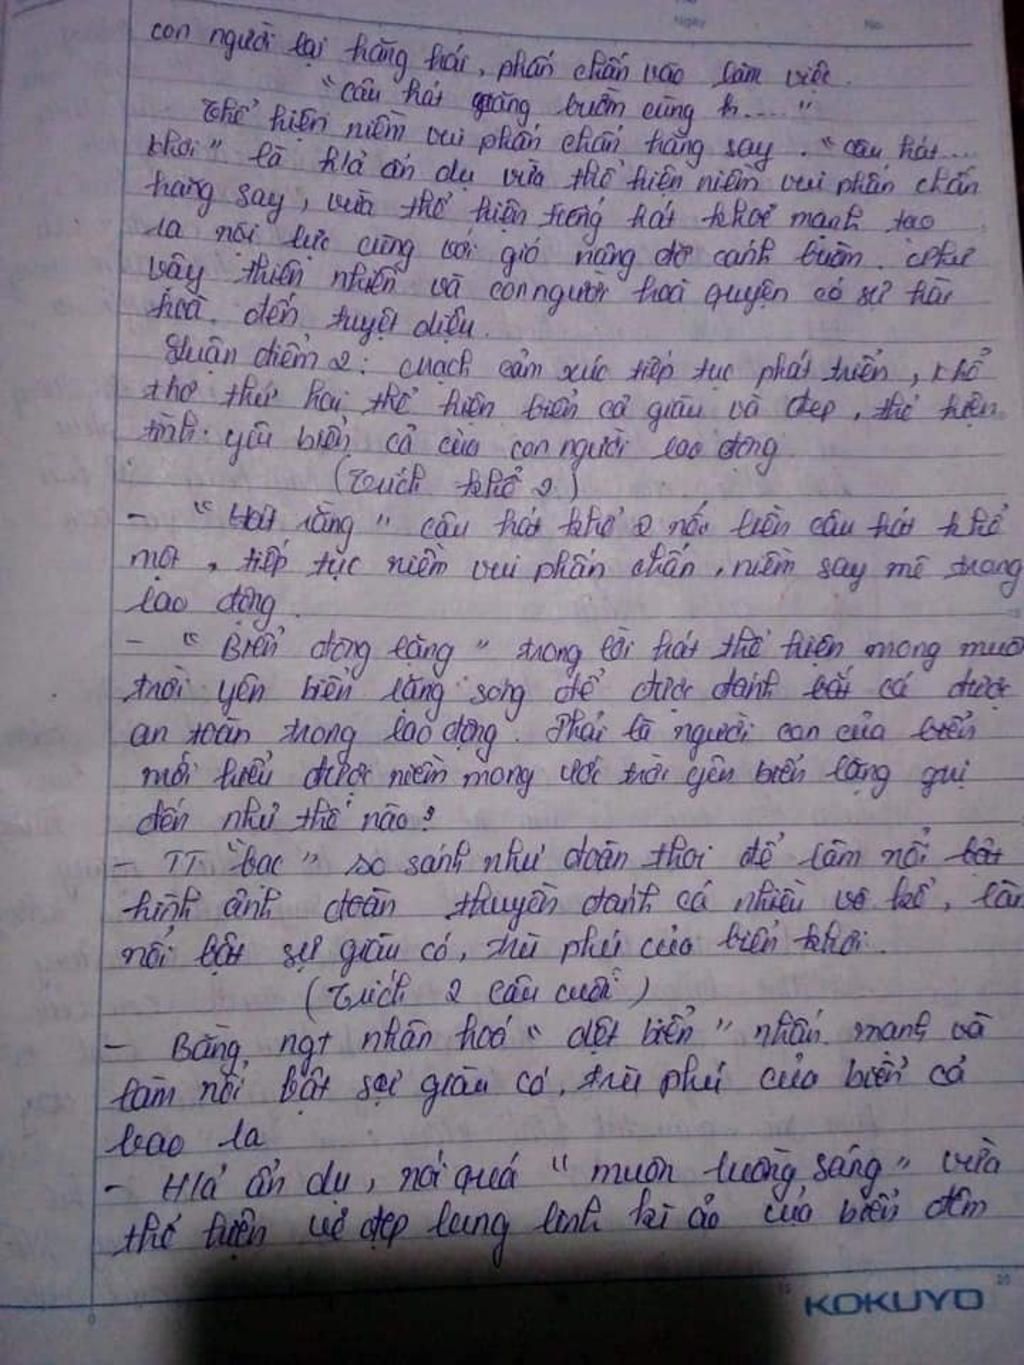 Ngày
No.
con người lại hăng hái, phấn chấn vào làm việc.
"câu hát găng buồm cùng h....."
Thể hiện niềm vui phấn chấn hăng say. "câu hát...
khơi" là h/ả ẩn dụ vừa thể hiện niềm vui phấn chấn
hăng say, vừa thể hiện tiếng hát khoẻ mạnh tạo
ra nội lực cùng với gió nâng đỡ cánh buồm. Như
vậy thiên nhiên và con người hoà quyện có sự hài
hoà đến tuyệt diệu.
Luận điểm 2: Mạch cảm xúc tiếp tục phát triển, khổ
thơ thứ hai thể hiện biển cả giàu và đẹp, thể hiện
tình yêu biển cả của con người lao động
(Trích khổ 2)
- "Hát rằng" câu hát khổ 2 nối liền câu hát khổ
một, tiếp tục niềm vui phấn chấn, niềm say mê trong
lao động.
- "Biển đông lặng" trong lời hát thể hiện mong muố
trời yên biển lặng song để được đánh bắt cá được
an toàn trong lao động. Phải là người con của biển
mới hiểu được niềm mong ước trời yên biển lặng quý
đến như thế nào?
- TT "bạc" so sánh như đoàn thoi để làm nổi bật
hình ảnh đoàn thuyền đánh cá nhiều vô kể, làm
nổi bật sự giàu có, trù phú của biển khơi.
(Trích 2 câu cuối)
- Bằng ngt nhân hoá "dệt biển" nhấn mạnh và
làm nổi bật sự giàu có, trù phú của biển cả
bao la
- H/ả ẩn dụ, nói quá "muôn luồng sáng" vừa
thể hiện vẻ đẹp lung linh kì ảo của biển đêm
KOKUYO